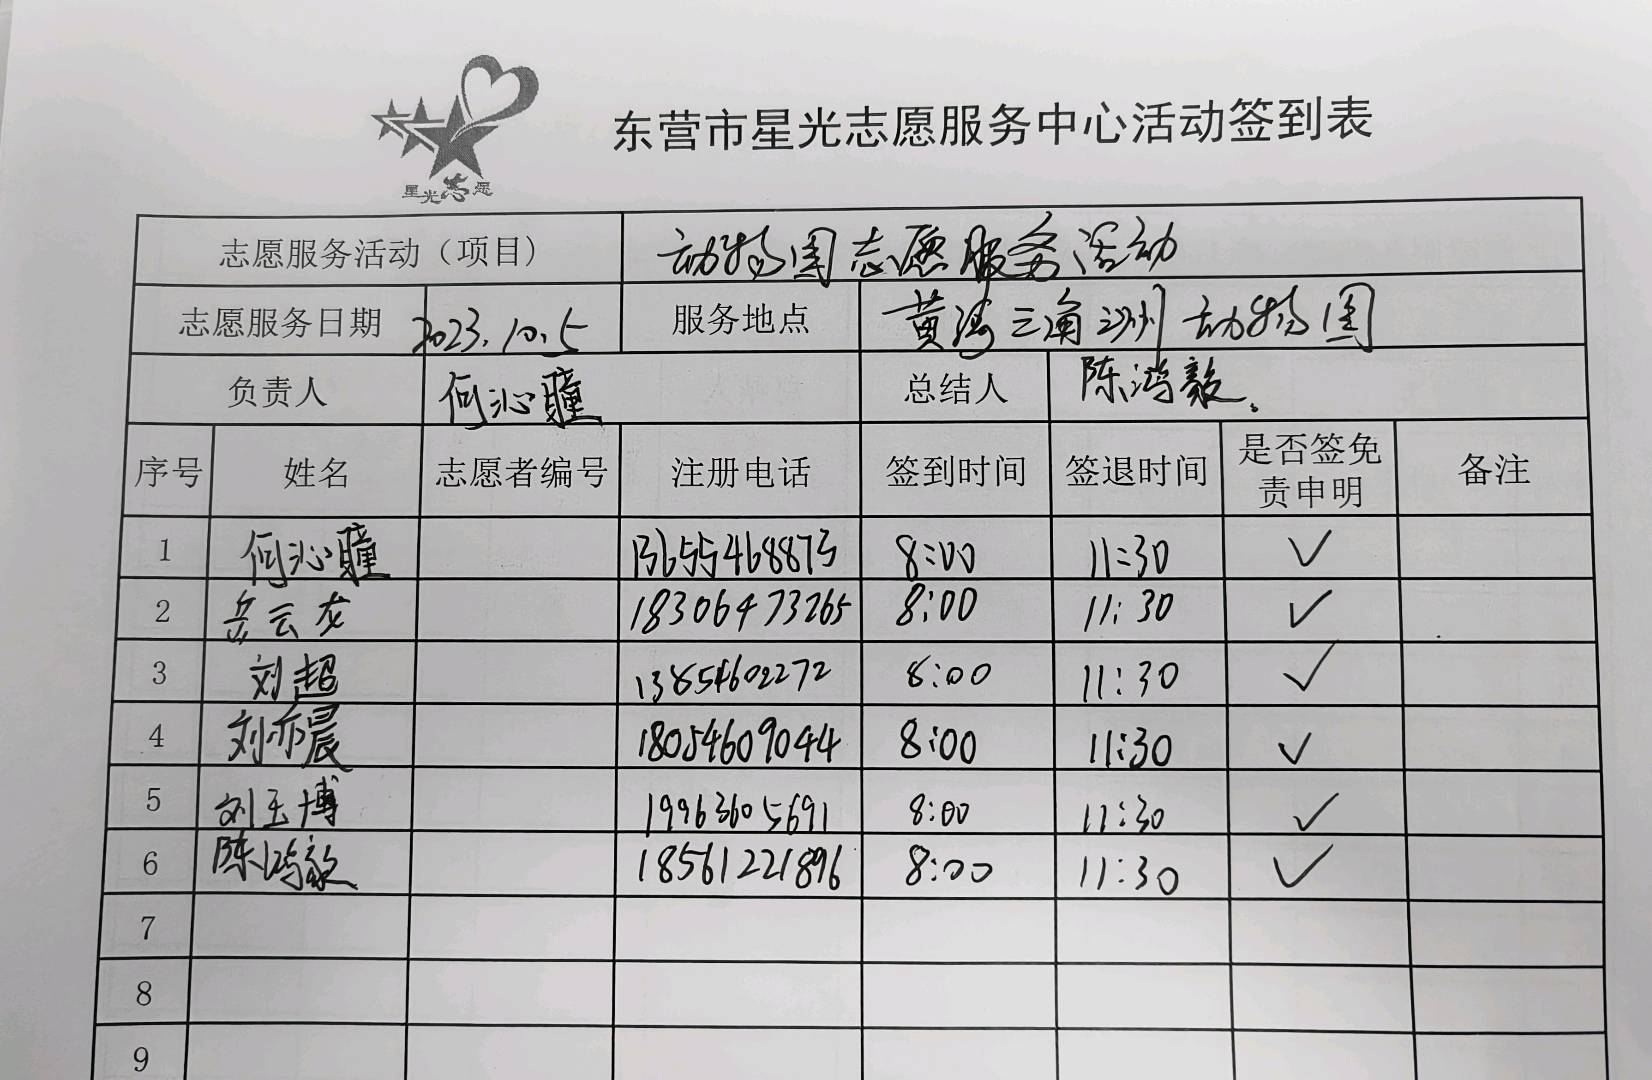 星光志愿
东营市星光志愿服务中心活动签到表
志愿服务活动（项目） 动物园志愿服务活动
志愿服务日期 2023.10.5 服务地点 黄河三角洲动物园
负责人 何沁瞳 总结人 陈鸿毅。
序号 姓名 志愿者编号 注册电话 签到时间 签退时间 是否签免责申明 备注
1 何沁瞳 13655468873 8:00 11:30 ✓
2 岳云龙 18306473265 8:00 11:30 ✓
3 刘超 13854602272 8:00 11:30 ✓
4 刘亦晨 18054609044 8:00 11:30 ✓
5 刘玉博 19963605691 8:00 11:30 ✓
6 陈鸿毅 18561221896 8:00 11:30 ✓
7
8
9